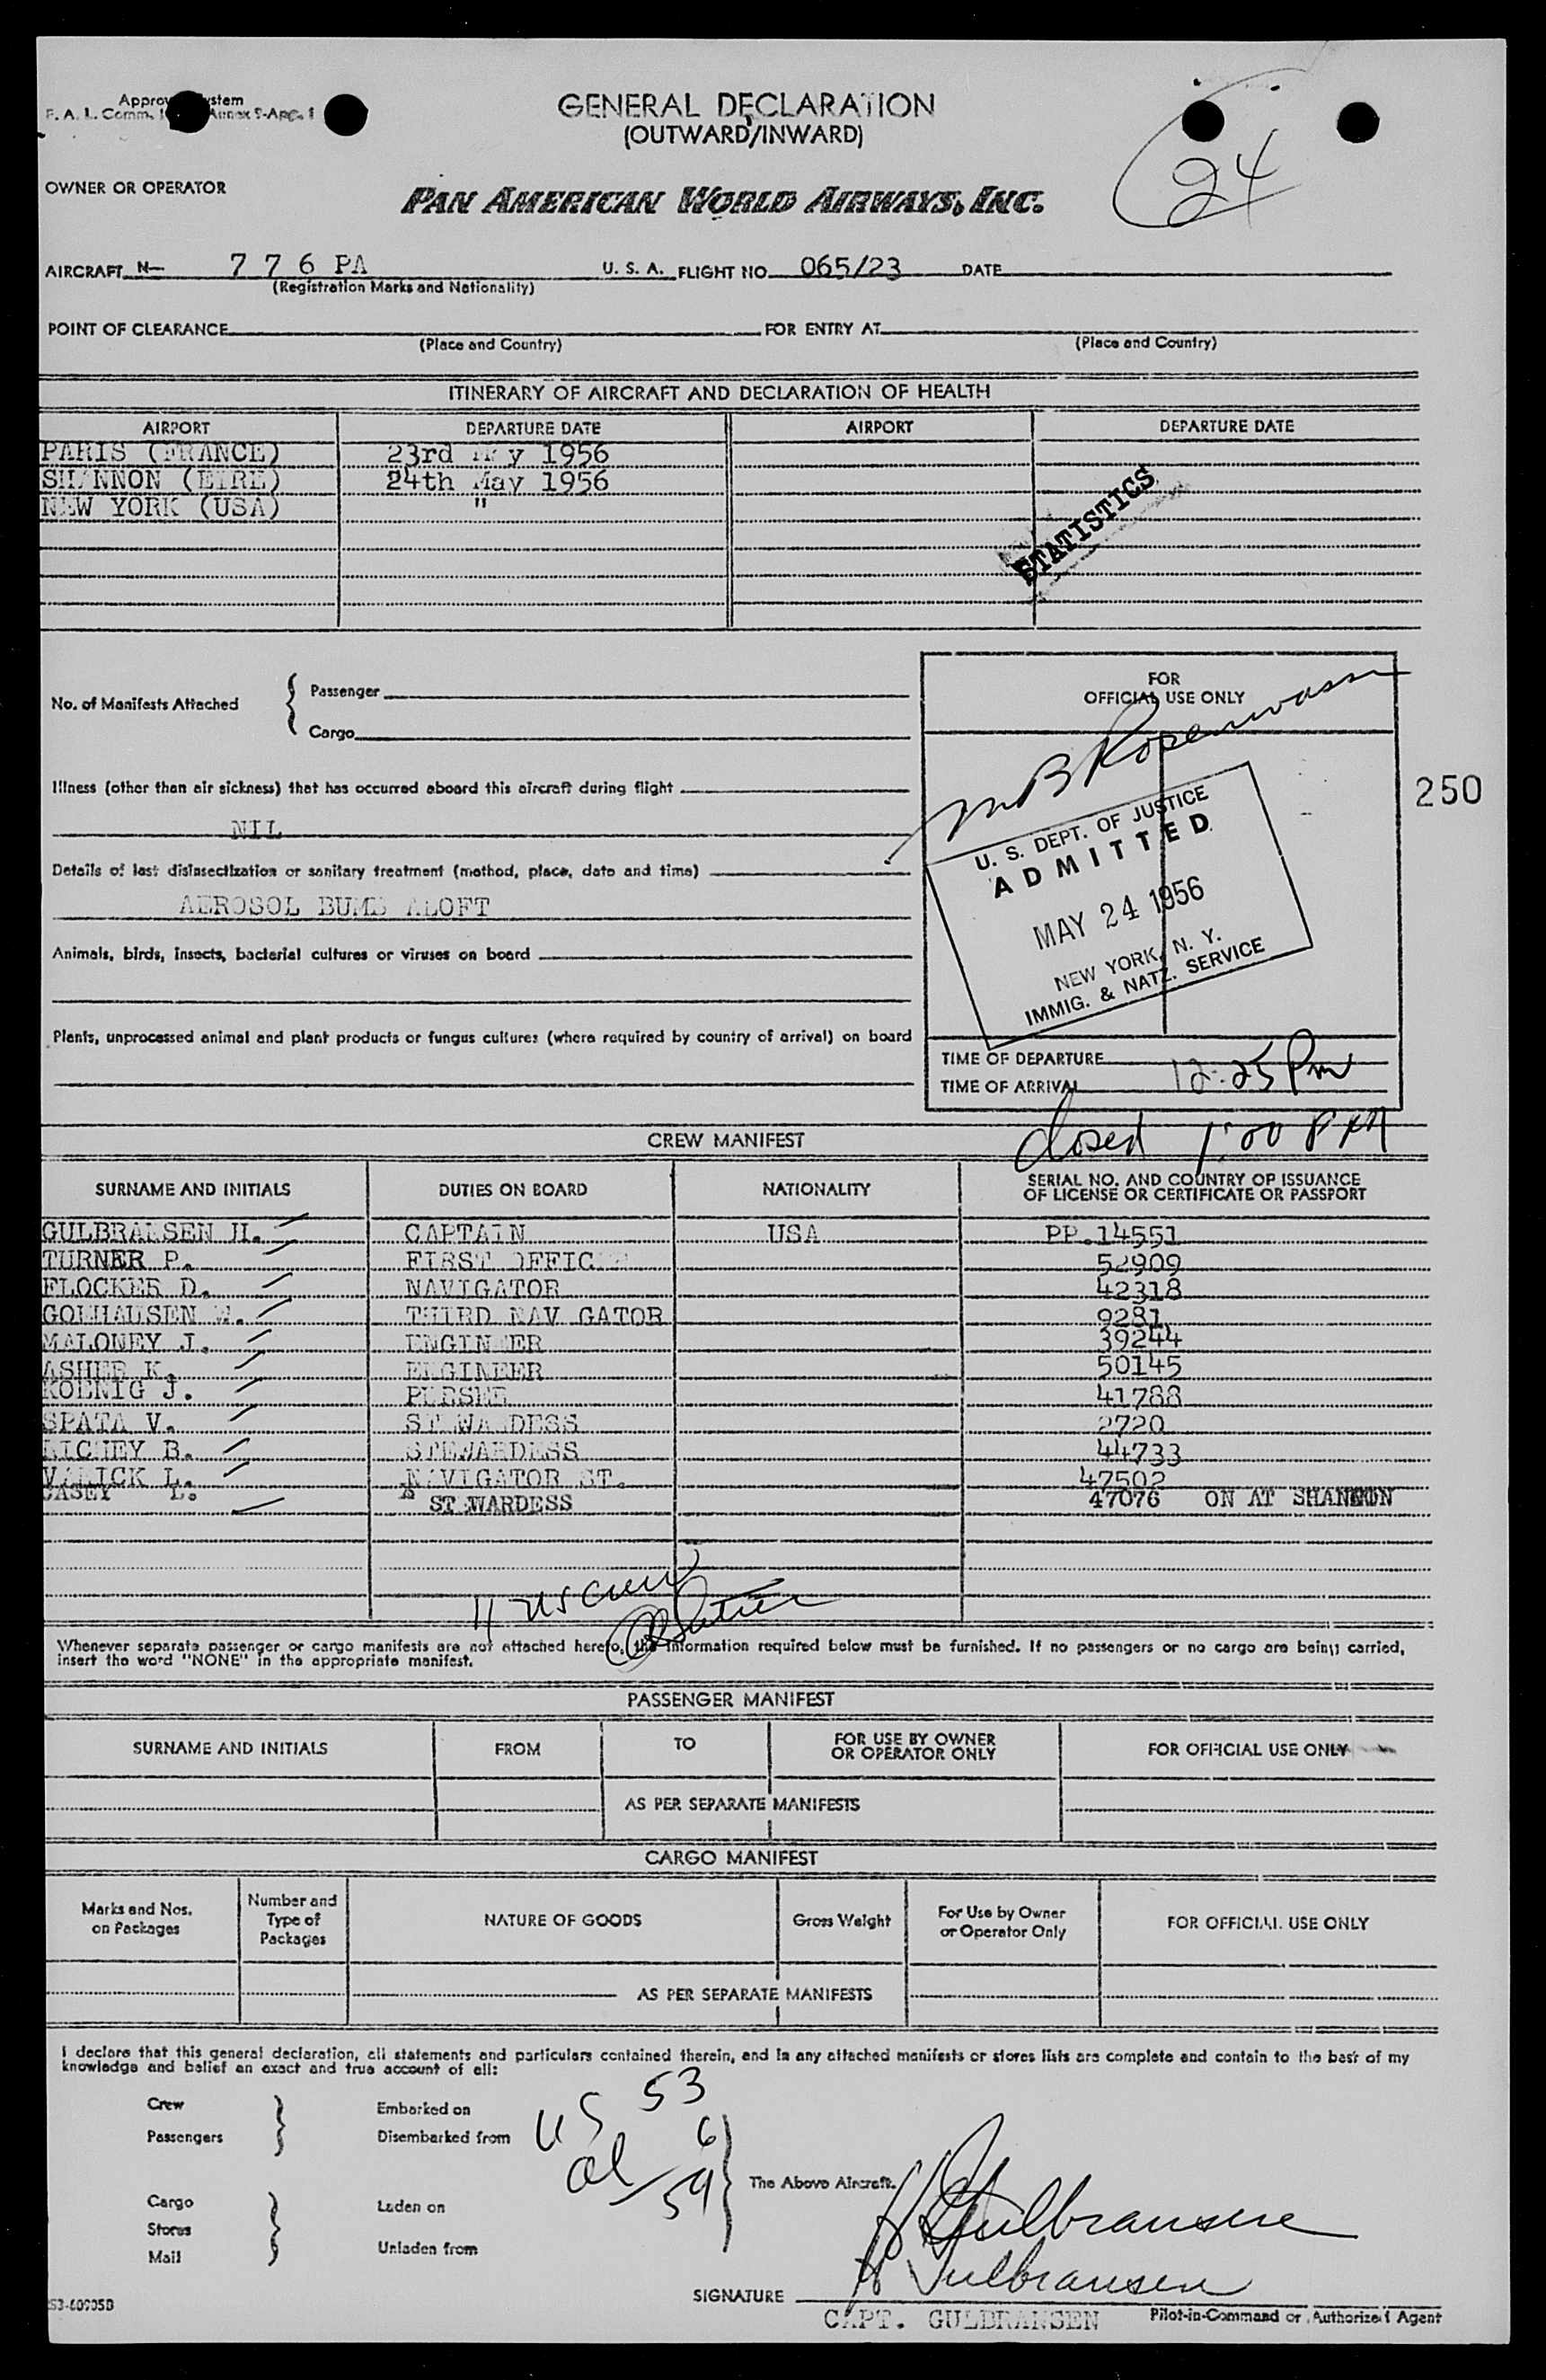 GENERAL DECLARATION
(OUTWARD/INWARD)
24
OWNER OR OPERATOR
PAN AMERICAN WORLD AIRWAYS, INC.
AIRCRAFT N— 7 7 6 PA U. S. A. FLIGHT NO. 065/23 DATE
(Registration Marks and Nationality)
POINT OF CLEARANCE FOR ENTRY AT
(Place and Country) (Place and Country)
ITINERARY OF AIRCRAFT AND DECLARATION OF HEALTH
AIRPORT DEPARTURE DATE AIRPORT DEPARTURE DATE
PARIS (FRANCE) 23rd May 1956
SHANNON (EIRE) 24th May 1956
NEW YORK (USA) "
STATISTICS
No. of Manifests Attached { Passenger
Cargo
FOR
OFFICIAL USE ONLY
Illness (other than air sickness) that has occurred aboard this aircraft during flight
250
NIL
Details of last disinsectization or sanitary treatment (method, place, date and time)
AEROSOL BUMB ALOFT
Animals, birds, insects, bacterial cultures or viruses on board
Plants, unprocessed animal and plant products or fungus cultures (where required by country of arrival) on board
U. S. DEPT. OF JUSTICE
ADMITTED
MAY 24 1956
NEW YORK, N. Y.
IMMIG. & NATZ. SERVICE
TIME OF DEPARTURE
TIME OF ARRIVAL 12:25 Pm
closed 1:00 P M
CREW MANIFEST
SURNAME AND INITIALS DUTIES ON BOARD NATIONALITY SERIAL NO. AND COUNTRY OF ISSUANCE
OF LICENSE OR CERTIFICATE OR PASSPORT
GULBRANSEN H. CAPTAIN USA PP.14551
TURNER P. FIRST OFFIC 52909
FLOCKER D. NAVIGATOR 42318
THIRD NAV GATOR 9281
MALONEY J. ENGINEER 39244
ASHER K. ENGINEER 50145
KOENIG J. PURSER 41788
SPATA V. STEWARDESS 2720
RICHEY B. STEWARDESS 44733
L. NAVIGATOR ST. 47502
CASEY L. ST WARDESS 47076 ON AT SHANNON
11 US crew
Whenever separate passenger or cargo manifests are not attached hereto, the information required below must be furnished. If no passengers or no cargo are being carried,
insert the word "NONE" in the appropriate manifest.
PASSENGER MANIFEST
SURNAME AND INITIALS FROM TO FOR USE BY OWNER
OR OPERATOR ONLY FOR OFFICIAL USE ONLY
AS PER SEPARATE MANIFESTS
CARGO MANIFEST
Marks and Nos.
on Packages Number and
Type of
Packages NATURE OF GOODS Gross Weight For Use by Owner
or Operator Only FOR OFFICIAL USE ONLY
AS PER SEPARATE MANIFESTS
I declare that this general declaration, all statements and particulars contained therein, and in any attached manifests or stores lists are complete and contain to the best of my
knowledge and belief an exact and true account of all:
Crew
Passengers
Embarked on
Disembarked from
US 53
al 6
59
The Above Aircraft.
Cargo
Stores
Mail
Laden on
Unladen from
H Gulbransen
H Gulbransen
SIGNATURE
CAPT. GULBRANSEN Pilot-in-Command or Authorized Agent